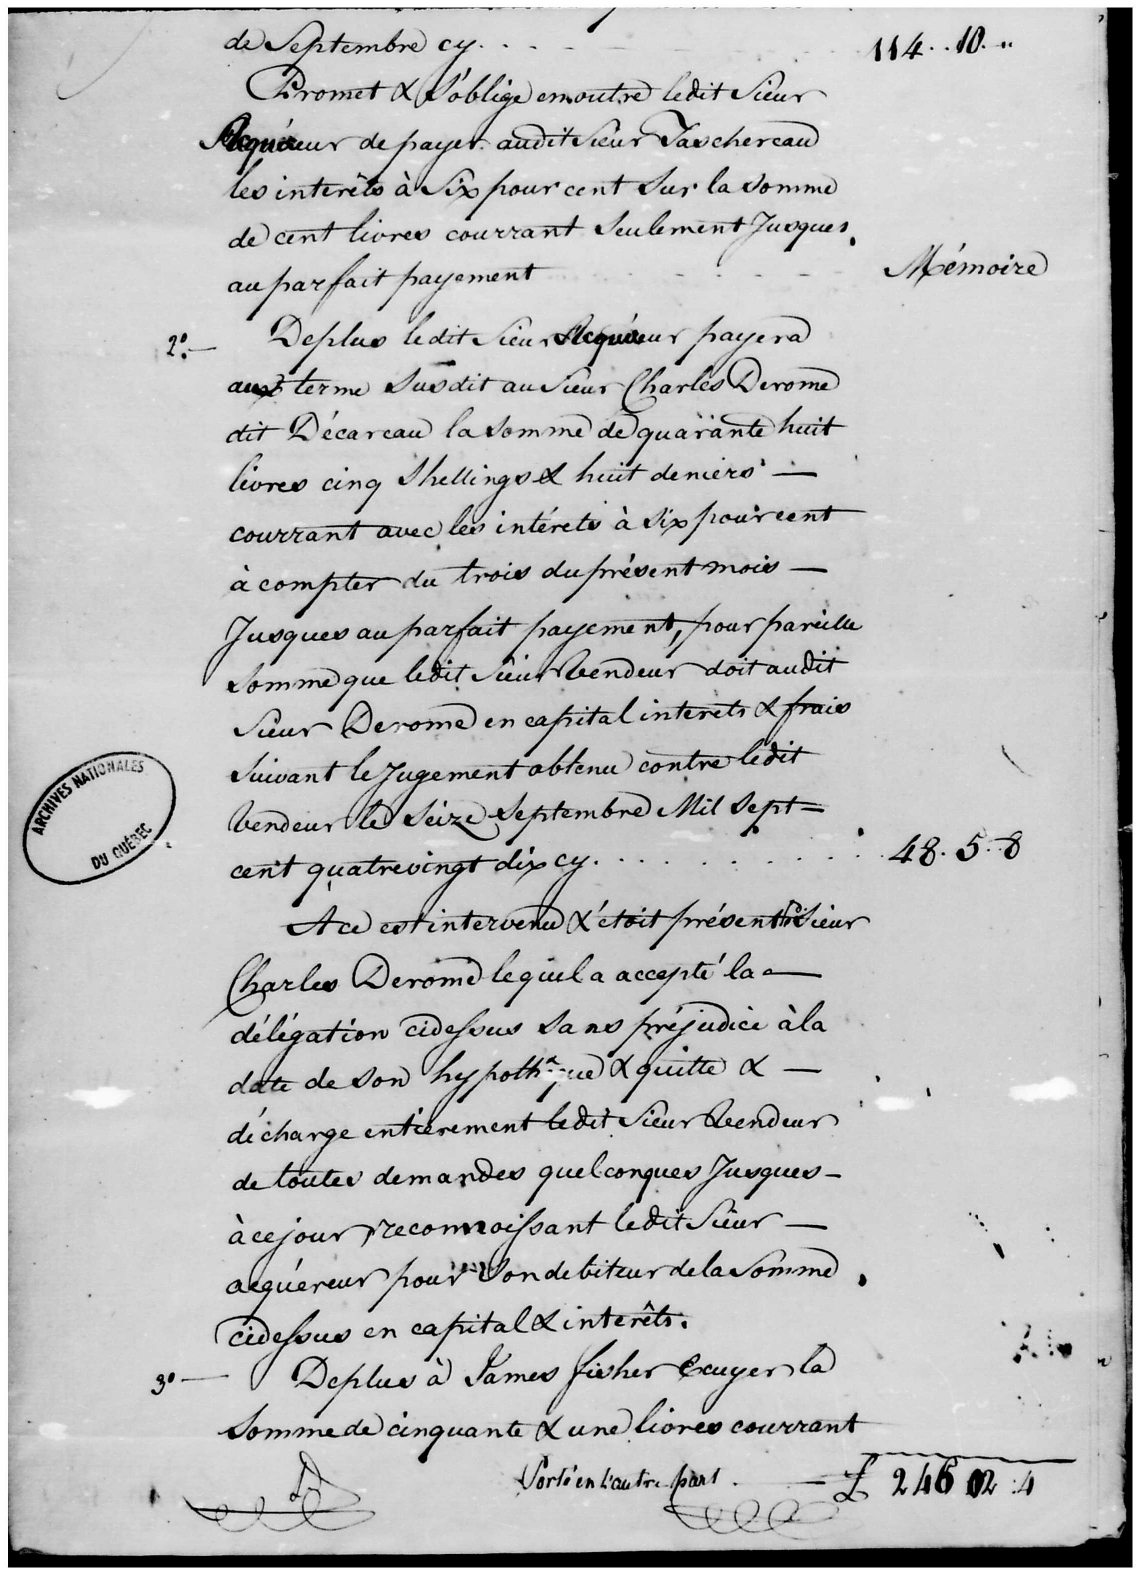 de Septembre cy. . . 114 . . 10 . "
Promet & S'oblige en outre ledit Sieur
Acquéreur de payer audit Sieur Taschereau
les interêts à Six pour cent Sur la Somme
de cent livres courrant Seulement Jusques
au parfait payement - - - - Mémoire
2º. — Deplus ledit Sieur Acquéreur payera
aux terme Susdit au Sieur Charles Derome
dit Décareau la Somme de quarante huit
livres cinq Shellings & huit deniers —
courrant avec les intérets à Six pour cent
à compter du trois du présent mois —
Jusques au parfait payement, pour pareille
Somme que ledit Sieur Vendeur doit audit
Sieur Derome en capital interets & frais
Suivant le Jugement obtenu contre ledit
Vendeur le Seize Septembre Mil Sept=
cent quatrevingt dix cy. . . . . . . . . . 48 . 5 . 8
ARCHIVES NATIONALES
DU QUÉBEC
A ce est intervenu & étoit présent le Sieur
Charles Derome lequel a accepté la —
délégation cidessus Sans préjudice à la
date de Son hypothéque & quitte & —
décharge entièrement ledit Sieur Vendeur
de toutes demandes quelconques Jusques —
à ce jour reconnoissant ledit Sieur —
acquéreur pour Son debiteur de la Somme
cidessus en capital & interêts.
3º — Deplus à James fisher Ecuyer la
Somme de cinquante & une livres courrant
Porté en l'autre part . — £ 246 02 . 4